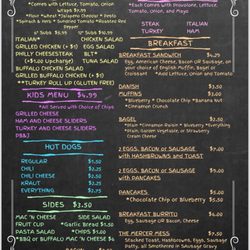 *Comes with Lettuce, Tomato, onion
wraps $5.95
*Flour *Wheat *Jalapeno Cheese *Pesto
*Spinach & Herb *Sundried Tomato *Roasted Red
Pepper
ITALIAN*
CHICKEN SALAD
GRILLED CHICKEN (+ $1)
EGG SALAD
PHILLY CHEESESTEAK
BLT*
(+$1.00 Upcharge)
TUNA SALAD
BUFFALO CHICKEN SALAD
GRILLED BUFFALO CHICKEN (+ $1)
**TURKEY ROLL UP (GLUTEN FREE)
KIDS MENU $4.99
*All Served with Choice of Chips
GRILLED CHEESE
HAM AND CHEESE SLIDERS
TURKEY AND CHEESE SLIDERS
PB&J
HOT DOGS
REGULAR $2.50
CHILI $3.00
CHILI CHEESE $3.50
KRAUT $3.00
EVERYTHING! $3.50
SIDES $3.50
MAC 'N CHEESE
SIDE SALAD
FRUIT CUP
*Garlic Bread
*PASTA SALAD
*Chips $1.50
*BBQ or BUFFALO MAC 'N CHEESE $6
*Each Comes with Provolone, Lettuce,
Tomato, Onion, and Mayo
STEAK
ITALIAN
TURKEY
HAM
BREAKFAST
BREAKFAST SANDWICH $4.29
Egg, American Cheese, Bacon OR Sausage, on
your choice of English Muffin, Bagel, or
Croissant *Add Lettuce, Onion and Tomato
DANISH $2.95
MUFFIN $2.50
*Blueberry *Chocolate Chip *Banana Nut
*Cinnamon Crunch
BAGEL
*Plain *Cinnamon-Raisin *Blueberry *Everything
*Plain, Garden Vegetable, or Strawberry
Cream Cheese
2 EGGS, BACON or SAUSAGE
with HASHBROWNS and TOAST
2 EGGS, BACON or SAUSAGE
with PANCAKES
PANCAKES
*Chocolate Chip or Blueberry $5.50
BREAKFAST BURRITO
Egg, Sausage OR Bacon, Cheese
THE MERCER MESS
Stacked Toast, Hashbrowns, Eggs, Sausage
Patty, all Smothered in Sausage Gravy